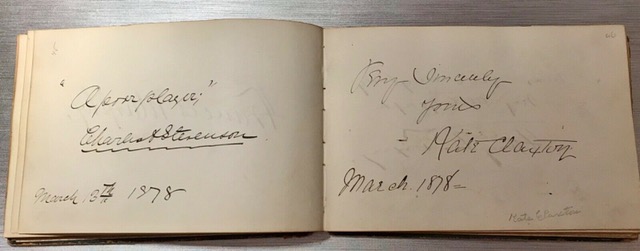 "A poor player,"
Charles A Stevenson
March 13th 1878
Very Sincerely
Yours
- Kate Claxton
March. 1878-
Kate Claxton